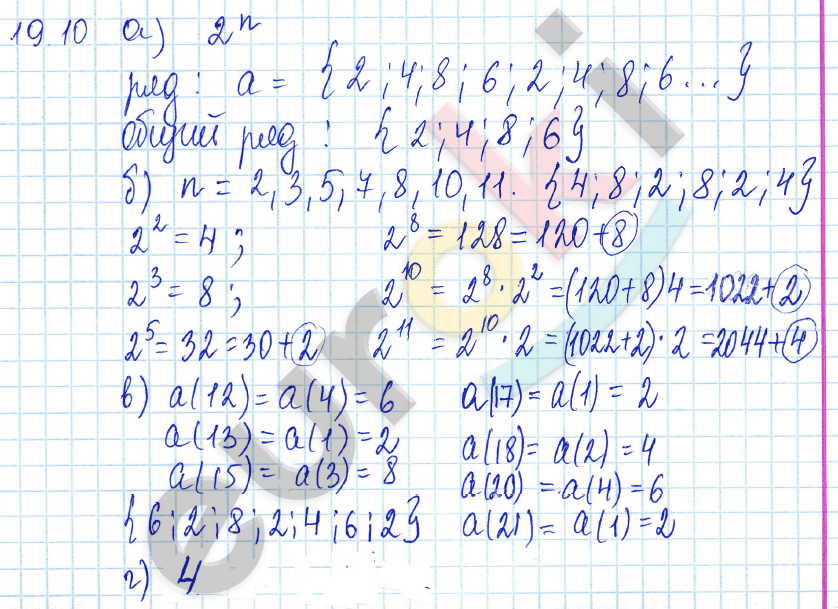 19.10 а) 2ⁿ
ряд: a = {2;4;8;6;2;4;8;6...}
общий ряд: {2;4;8;6}
б) n = 2,3,5,7,8,10,11. {4;8;2;8;2;4}
2² = 4; 2⁸ = 128 = 120+8
2³ = 8; 2¹⁰ = 2⁸·2² = (120+8)4 = 1022+2
2⁵ = 32 = 30+2 2¹¹ = 2¹⁰·2 = (1022+2)·2 = 2044+4
в) a(12) = a(4) = 6 a(17) = a(1) = 2
a(13) = a(1) = 2 a(18) = a(2) = 4
a(15) = a(3) = 8 a(20) = a(4) = 6
{6;2;8;2;4;6;2} a(21) = a(1) = 2
г) 4
euroki